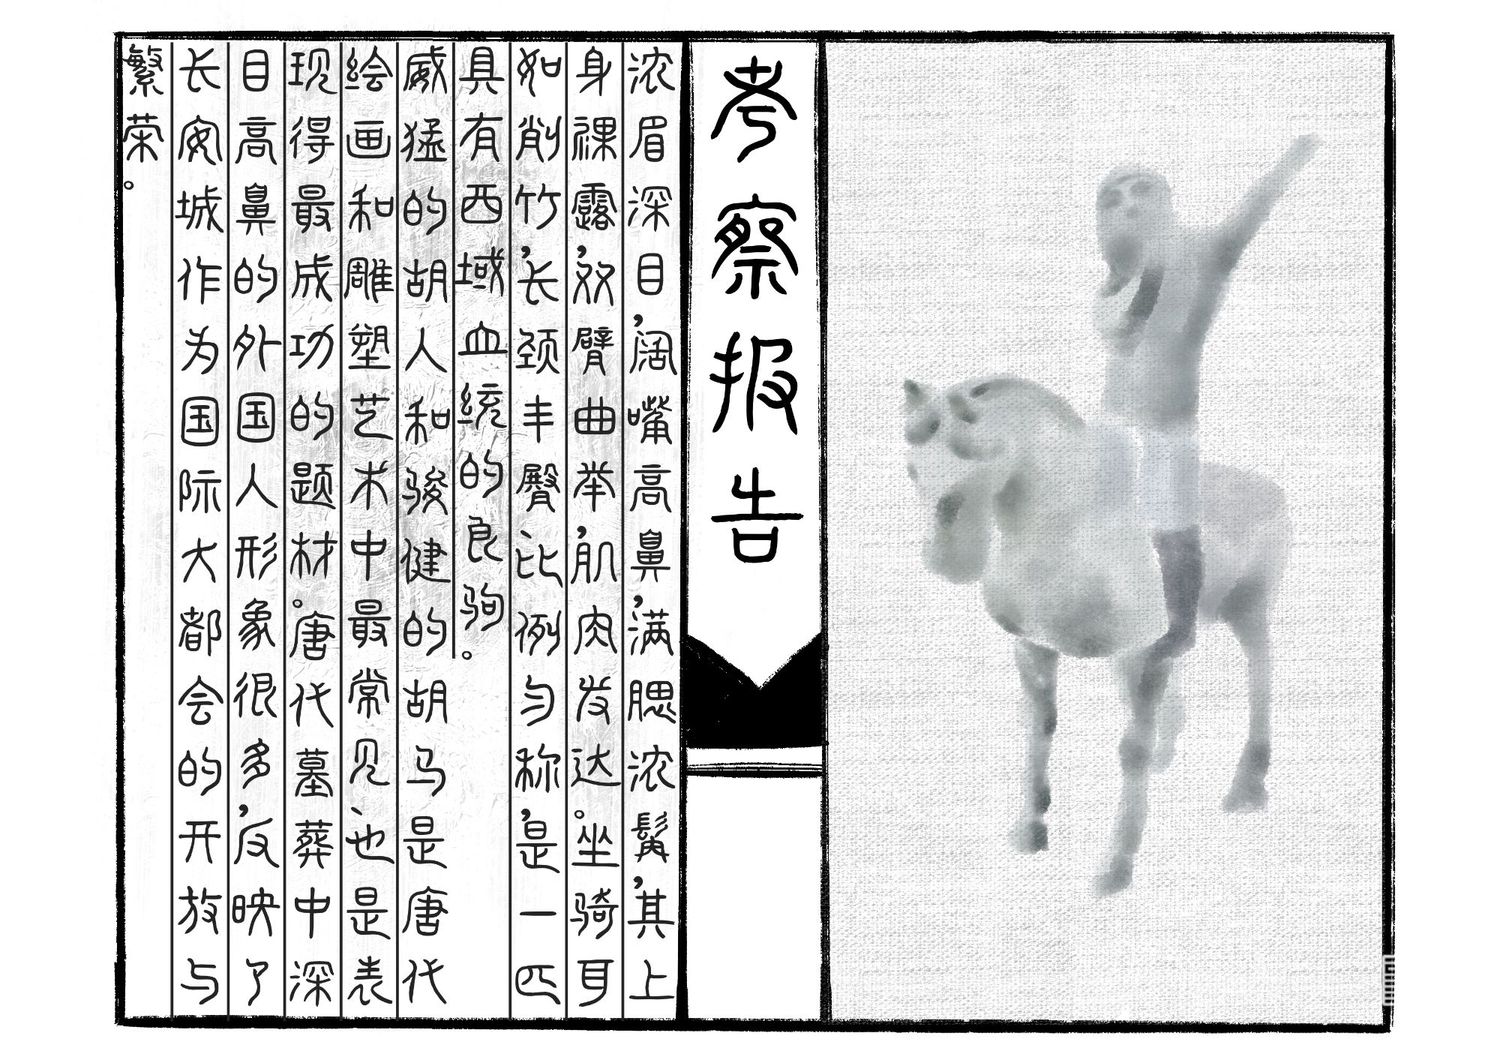 考察报告
浓眉深目,阔嘴高鼻,满腮浓髯,其上
身裸露,双臂曲举,肌肉发达。坐骑耳
如削竹,长颈丰臀,比例匀称,是一匹
具有西域血统的良驹。
威猛的胡人和骏健的胡马是唐代
绘画和雕塑艺术中最常见、也是表
现得最成功的题材。唐代墓葬中深
目高鼻的外国人形象很多,反映了
长安城作为国际大都会的开放与
繁荣。